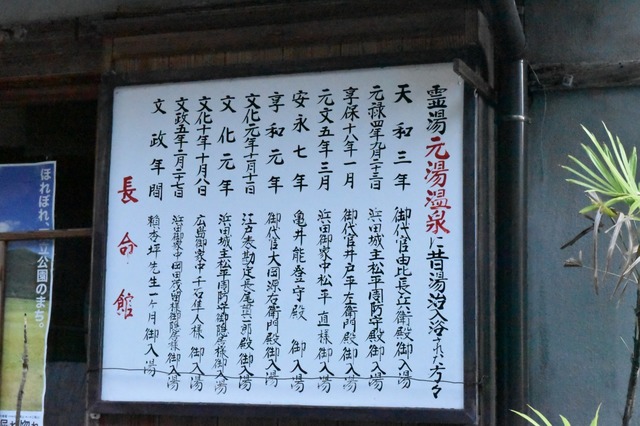 霊湯元湯温泉に昔湯治入浴された方々
天和三年 御代官由比長兵衛殿御入湯
元禄四年九月十三日 浜田城主松平周防守殿御入湯
享保十八年一月 御代官井戸平左衛門殿御入湯
元文五年三月 浜田御家中松平直様御入湯
安永七年 亀井能登守殿御入湯
享和元年 御代官大岡源右衛門殿御入湯
文化元年十一月十二日 江戸表勘定長尾 一郎殿御入湯
文化元年 浜田城主松平周防守御隠居様御入湯
文化十年十月八日 広島御家中千日隼人様御入湯
文政五年二月二十七日 浜田御家中岡田茂留様御隠居様御入湯
文政年間 頼杏坪先生一ヶ月御入湯
長命館
ほれぼれ、
公園のまち。